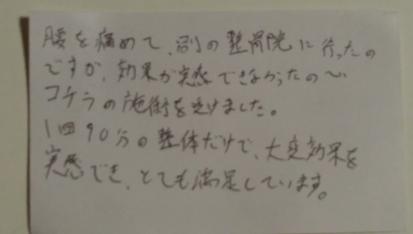 腰を痛めて、別の整骨院に行ったの
ですが、効果が実感できなかったので
コチラの施術を受けました。
1回90分の整体だけで、大変効果を
実感でき、とても満足しています。